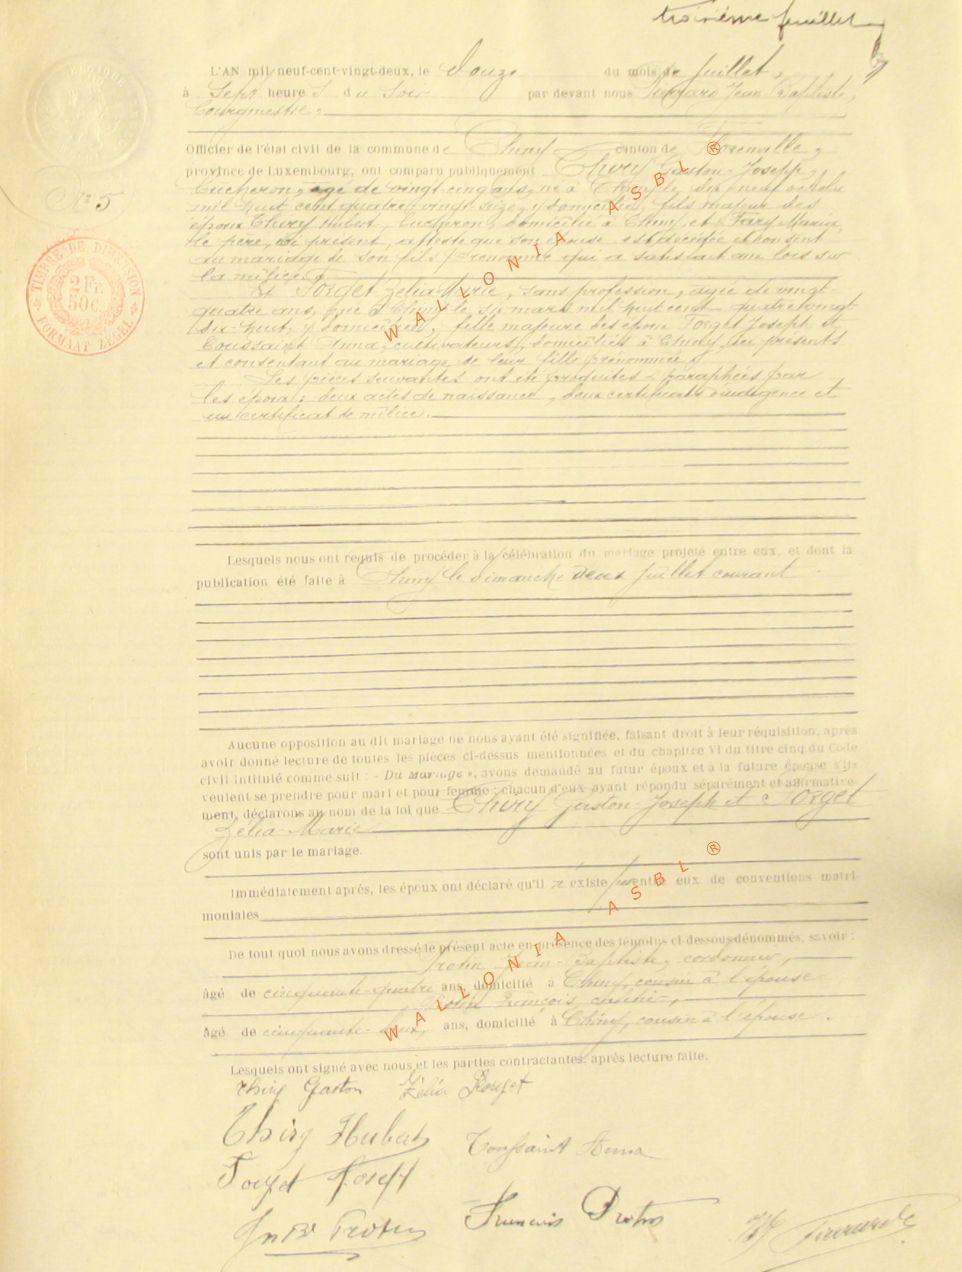 troisième feuillet
L'AN mil-neuf-cent-vingt-deux, le douze du mois de juillet,
à Sept heures du Soir par devant nous Jean Baptiste,
bourgmestre,
Officier de l'état civil de la commune de Chiny canton de Florenville,
province de Luxembourg, ont comparu publiquement Thiry Gaston-Joseph,
bucheron, âgé de vingt cinq ans, né à Chiny le dix neuf octobre
mil huit cent quatre vingt seize, y domicilié, fils majeur des
époux Thiry Hubert, bucheron, domicilié à Chiny, et Marie,
le père, ici présent, atteste que son épouse est décédée et consent
au mariage de son fils prénommé qui a satisfait aux lois sur
la milice
Et Forget Zélia-Marie, sans profession, âgée de vingt-
quatre ans, née à Chiny le six mars mil huit cent quatre vingt
dix-huit, y domiciliée, fille majeure des époux Forget Joseph et
Toussaint Anna, cultivateurs, domiciliés à Chiny, ici présents
et consentant au mariage de leur fille prénommée
Les pièces suivantes ont été produites & paraphées par
les époux: deux actes de naissance, deux certificats d'indigence et
un certificat de milice.
N° 5
TIMBRE DE DIMENSION
2 Fr.
50 C.
FORMAAT ZEGEL
Lesquels nous ont requis de procéder à la célébration du mariage projeté entre eux, et dont la
publication été faite à Chiny le dimanche deux juillet courant
Aucune opposition au dit mariage ne nous ayant été signifiée, faisant droit à leur réquisition, après
avoir donné lecture de toutes les pièces ci-dessus mentionnées et du chapitre VI du titre cinq du Code
civil intitulé comme suit : « Du Mariage », avons demandé au futur époux et à la future épouse s'ils
veulent se prendre pour mari et pour femme ; chacun d'eux ayant répondu séparément et affirmative-
ment, déclarons au nom de la loi que Thiry Gaston-Joseph et Forget
Zélia-Marie
sont unis par le mariage.
Immédiatement après, les époux ont déclaré qu'il n'existe pas entre eux de conventions matri-
moniales
De tout quoi nous avons dressé le présent acte en présence des témoins ci-dessous dénommés, savoir :
Protin Jean-Baptiste, cordonnier,
âgé de cinquante-quatre ans, domicilié à Chiny, cousin à l'épouse
Protin François,
âgé de cinquante-deux, ans, domicilié à Chiny, cousin à l'épouse.
Lesquels ont signé avec nous et les parties contractantes, après lecture faite.
Thiry Gaston Zélia Forget
Thiry Hubert Toussaint Anna
Forget Joseph
Jn Bt Protin François Protin
WALLONIA ASBL ®
WALLONIA ASBL ®